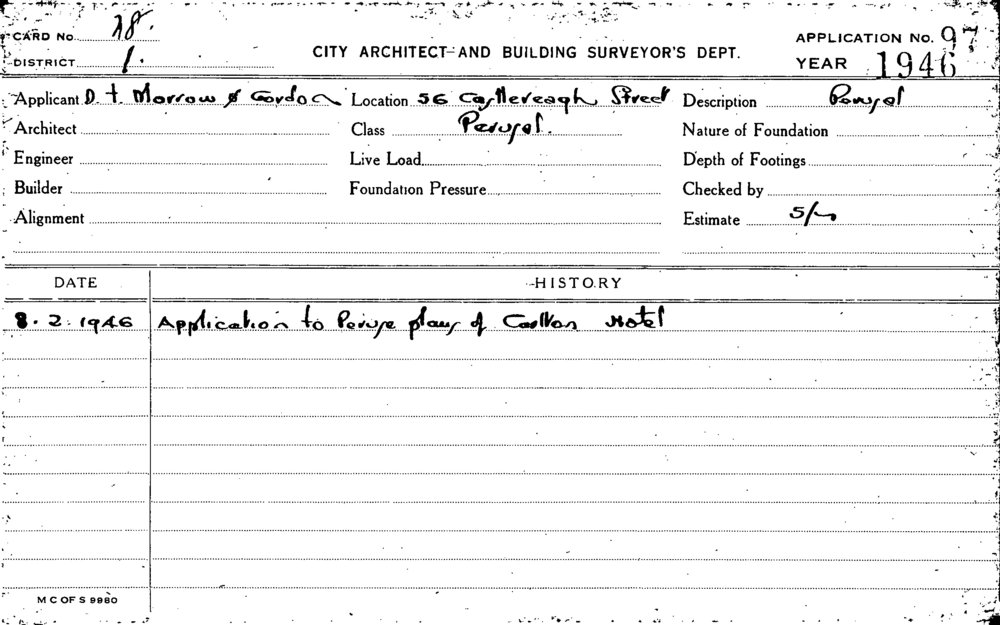 CARD No. 28.
APPLICATION No. 97
CITY ARCHITECT AND BUILDING SURVEYOR'S DEPT.
DISTRICT 1.
YEAR 1946
Applicant D. T. Morrow & Gordon Location 56 Castlereagh Street Description Perusal
Architect Class Perusal. Nature of Foundation
Engineer Live Load Depth of Footings
Builder Foundation Pressure Checked by
Alignment Estimate 5/-
DATE HISTORY
8.2.1946 Application to Peruse plans of Carlton Hotel
M C OF S 9980